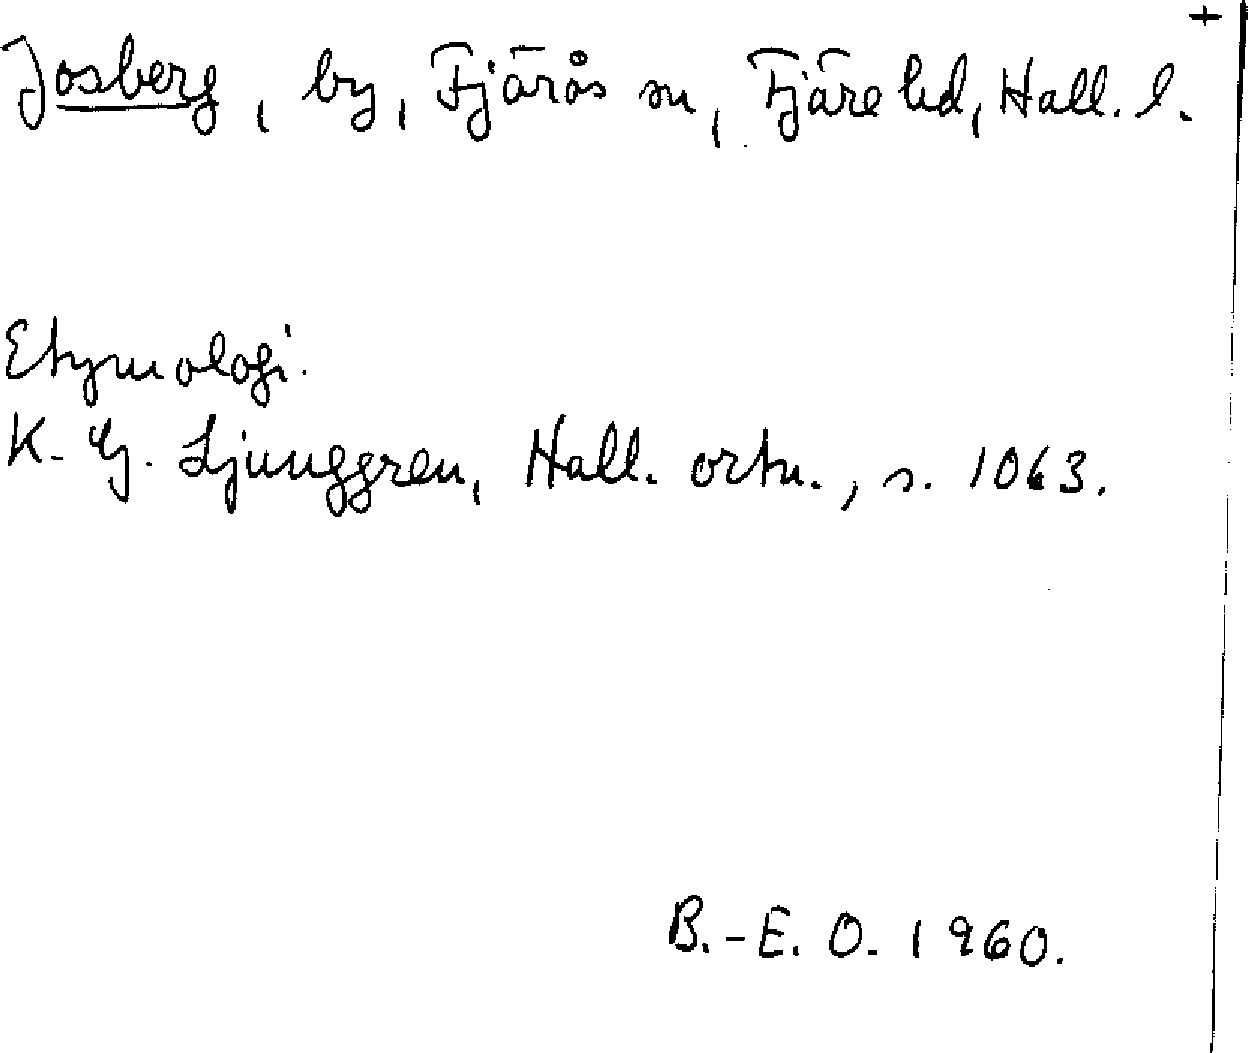 +
Josberg, by, Fjärås sn, Fjäre hd, Hall. l.
Etymologi.
K. G. Ljunggren, Hall. ortn., s. 1063.
B.-E. O. 1960.